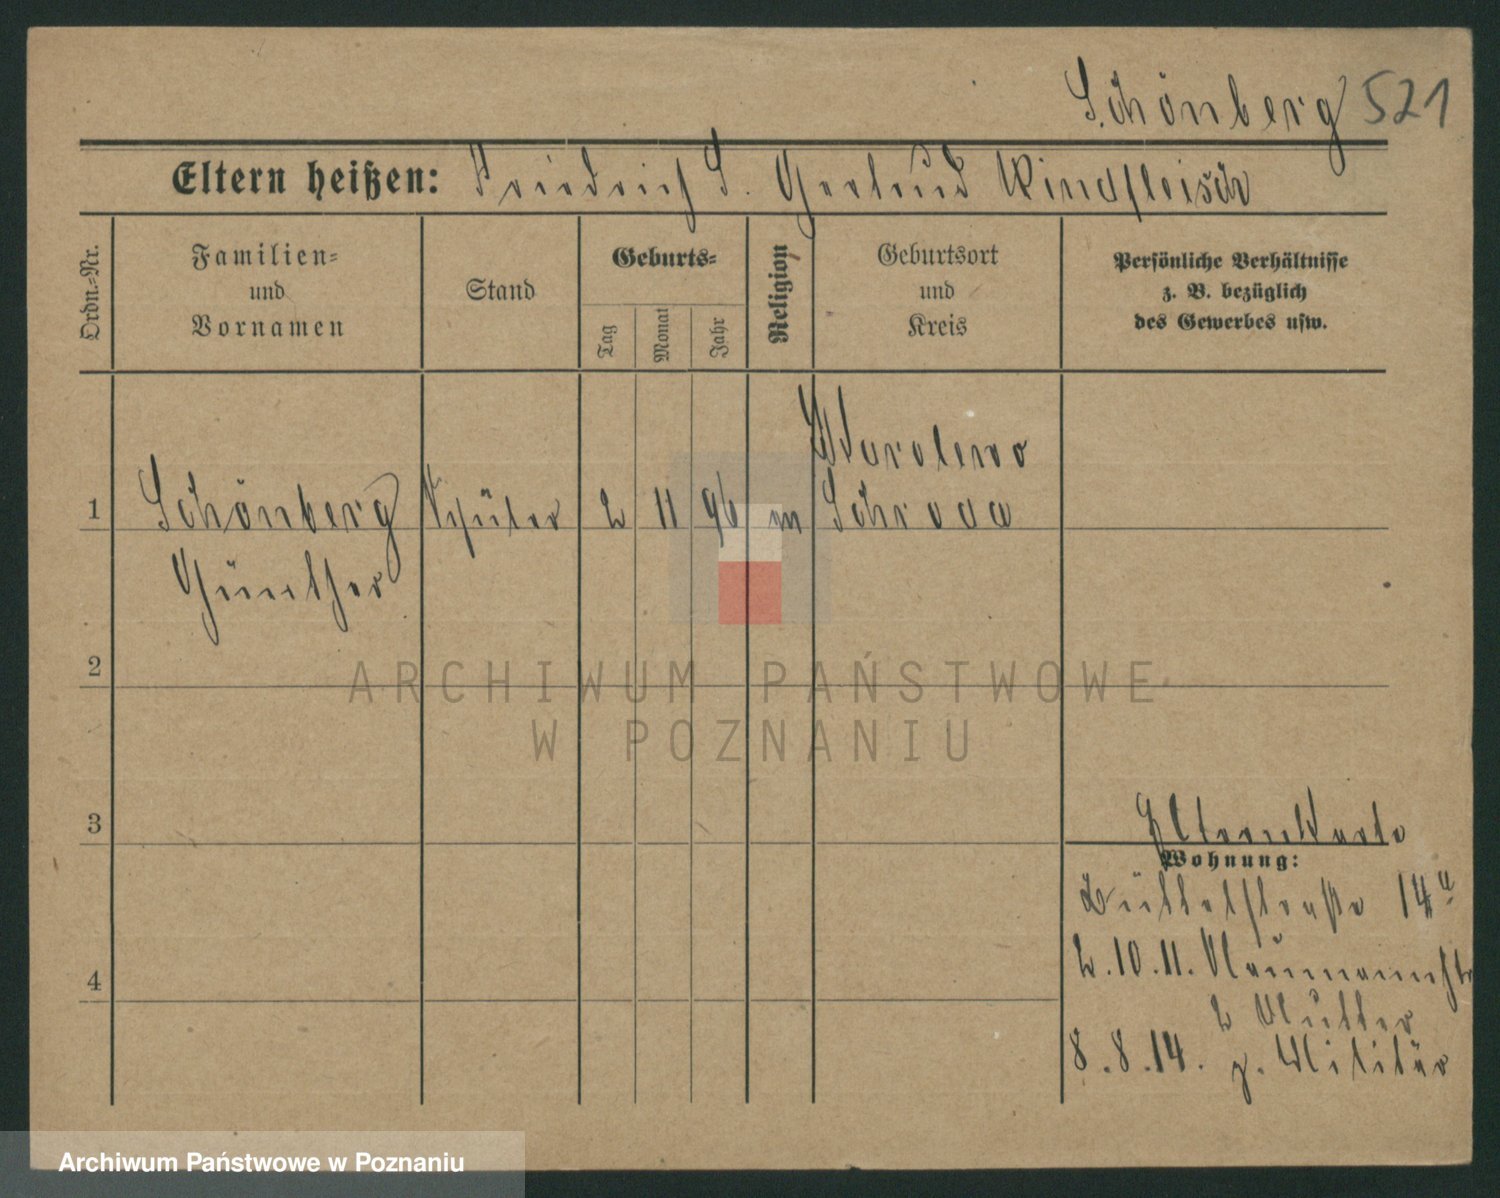 Schönberg 521
Eltern heißen: Friedrich S. Gertrud Rindfleisch
Ordn.=Nr.
Familien=
und
Vornamen
Stand
Geburts=
Tag
Monat
Jahr
Religion
Geburtsort
und
Kreis
Persönliche Verhältnisse
z. B. bezüglich
des Gewerbes usw.
1
Schönberg
Günther
Schüler
2
11
96
m
Schroda
2
3
4
ARCHIWUM PAŃSTWOWE
W POZNANIU
Elternkarte
Wohnung:
Büttelstraße 14a
2.10.11. Naumannstr
2 Mutter
8.8.14. z. Militär
Archiwum Państwowe w Poznaniu